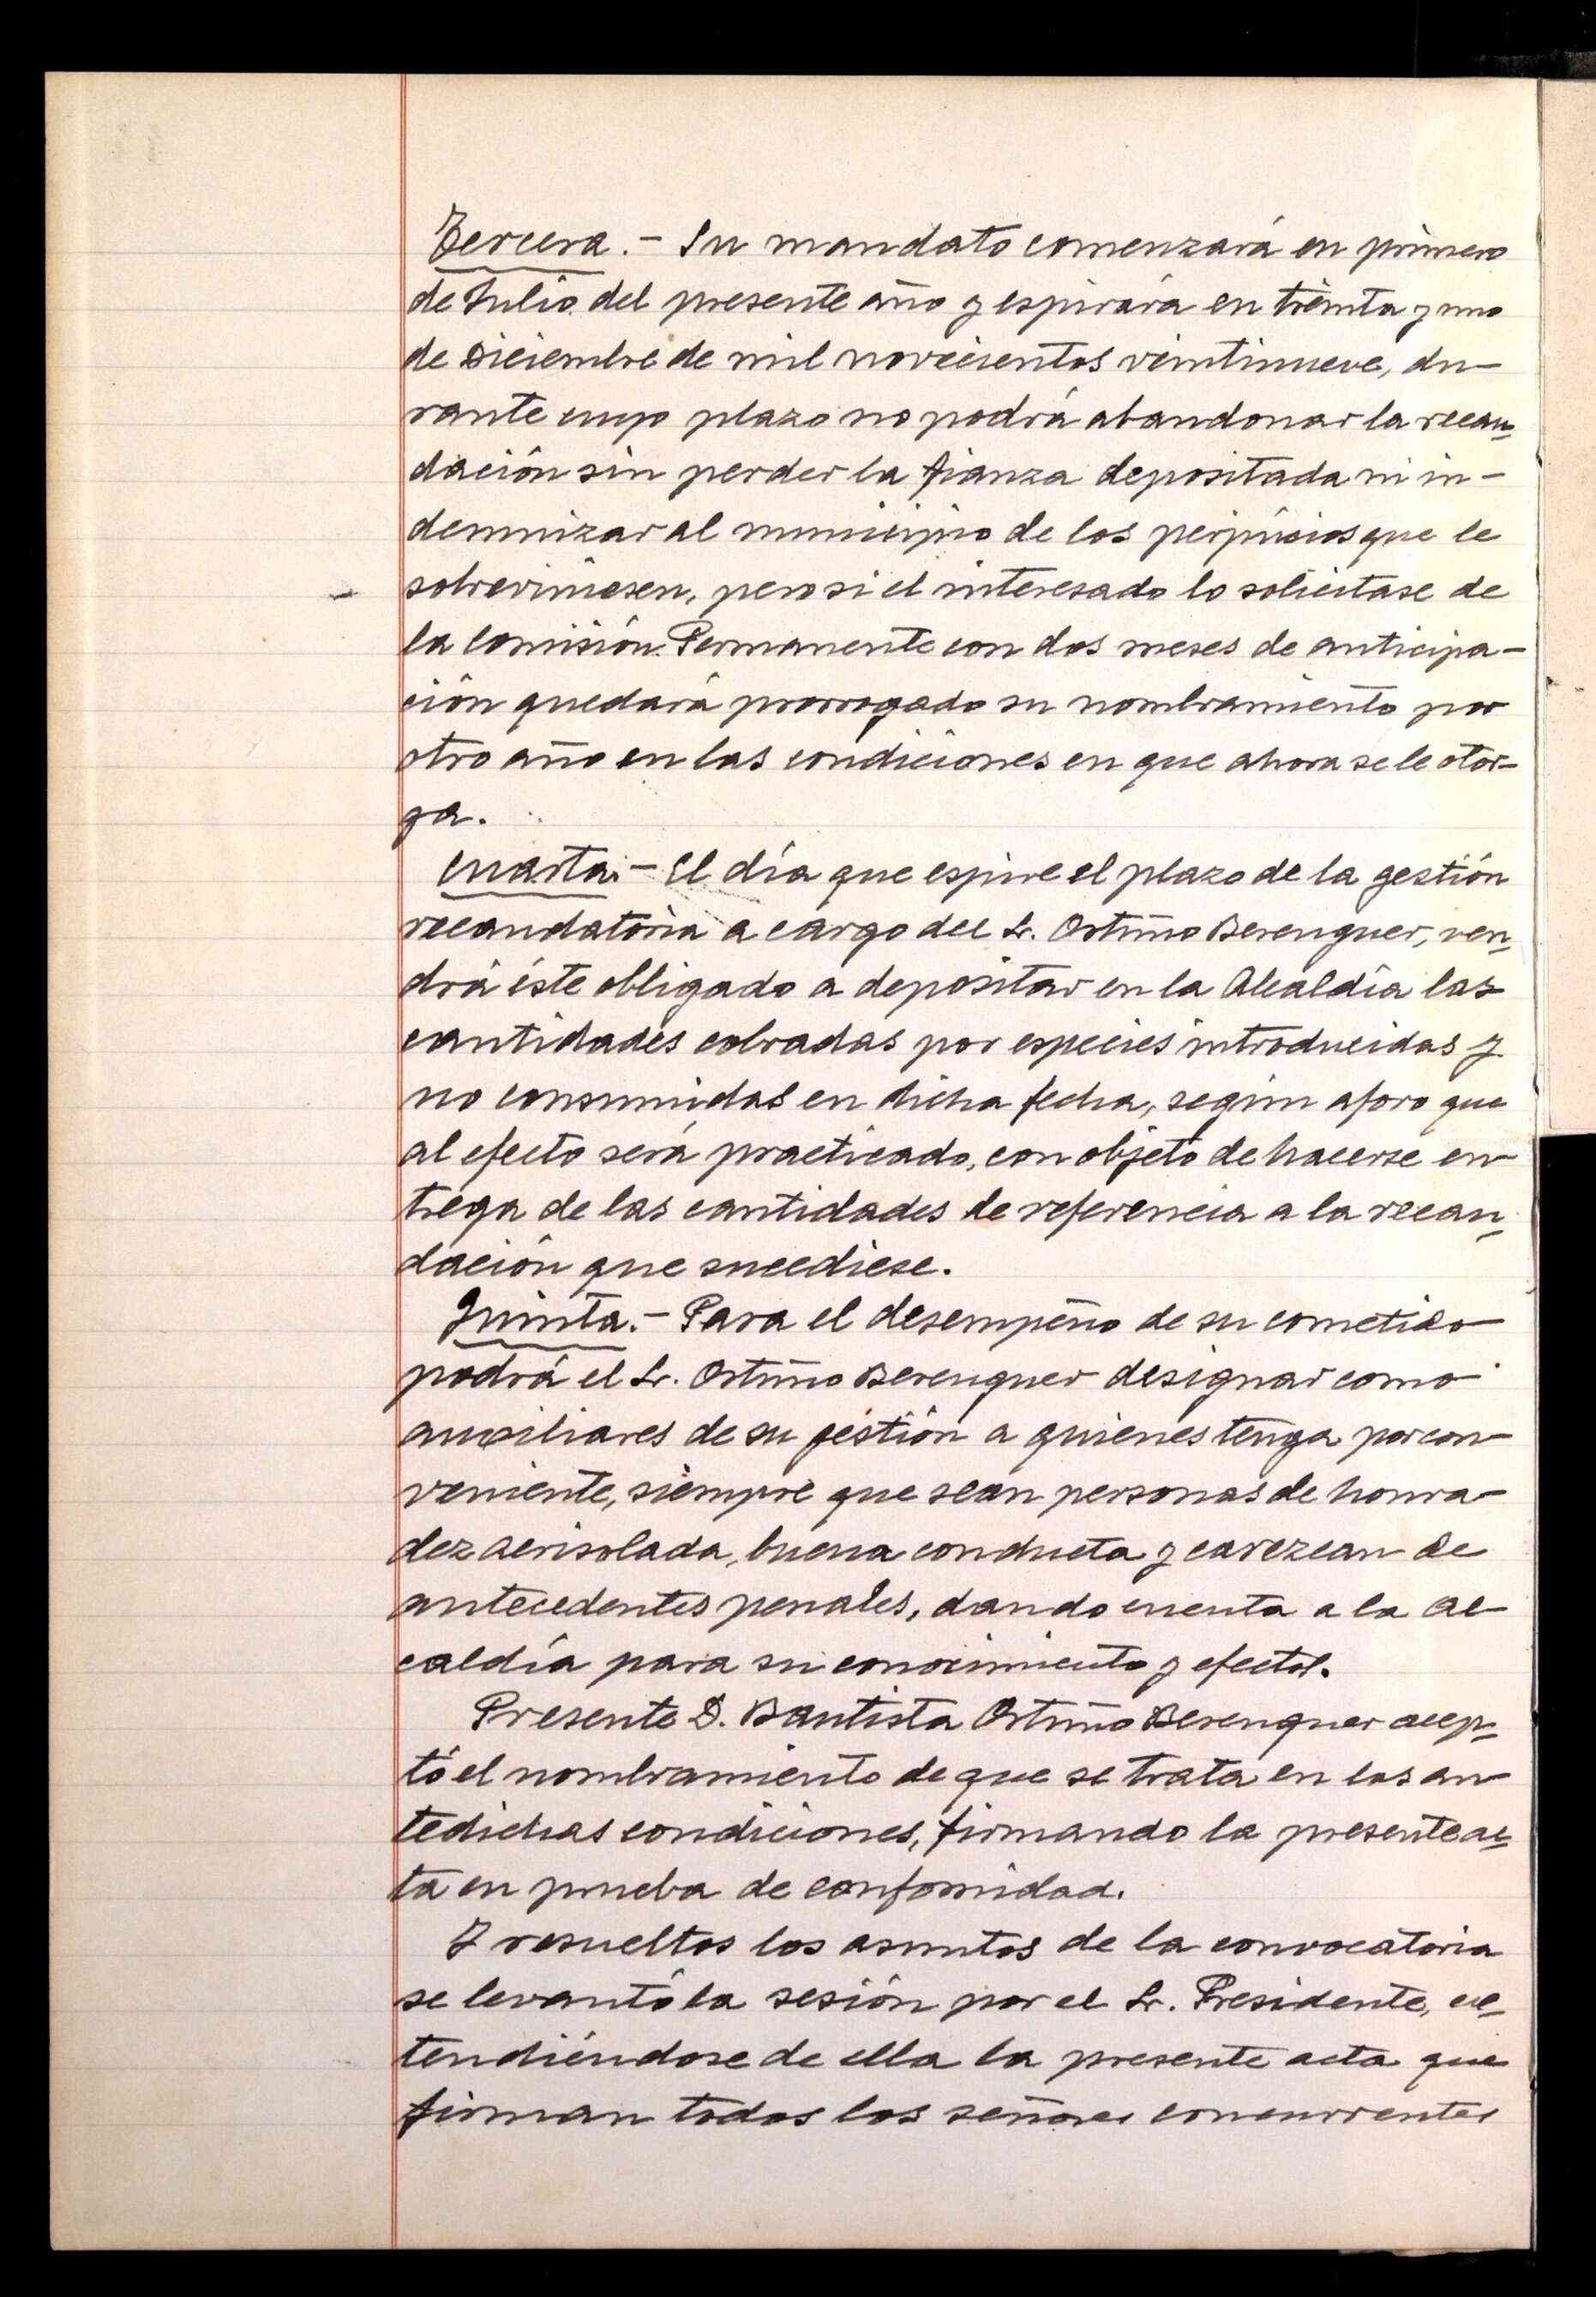 Tercera.- Su mandato comenzará en primero
de Julio del presente año y espirará en treinta y uno
de Diciembre de mil novecientos veintinueve, du-
rante cuyo plazo no podrá abandonar la recau-
dación sin perder la fianza depositada ni in-
demnizar al municipio de los perjuicios que le
sobreviniesen, pero si el interesado lo solicitase de
la Comisión Permanente con dos meses de anticipa-
ción quedará prorrogado su nombramiento por
otro año en las condiciones en que ahora se le otor-
ga.
Cuarta.- El día que espire el plazo de la gestión
recaudatoria a cargo del Sr. Ortuño Berenguer, ven-
drá éste obligado a depositar en la Alcaldía las
cantidades cobradas por especies introducidas y
no consumidas en dicha fecha, según aforo que
al efecto será practicado, con objeto de hacerse en-
trega de las cantidades de referencia a la recau-
dación que sucediese.
Quinta.- Para el desempeño de su cometido
podrá el Sr. Ortuño Berenguer designar como
auxiliares de su gestión a quienes tenga por con-
veniente, siempre que sean personas de honra-
dez acrisolada, buena conducta y carezcan de
antecedentes penales, dando cuenta a la Al-
caldía para su conocimiento y efectos.
Presente D. Bautista Ortuño Berenguer acep-
tó el nombramiento de que se trata en las an-
tedichas condiciones, firmando la presente ac-
ta en prueba de conformidad.
Y resueltos los asuntos de la convocatoria
se levantó la sesión por el Sr. Presidente, ex-
tendiéndose de ella la presente acta que
firman todos los señores concurrentes